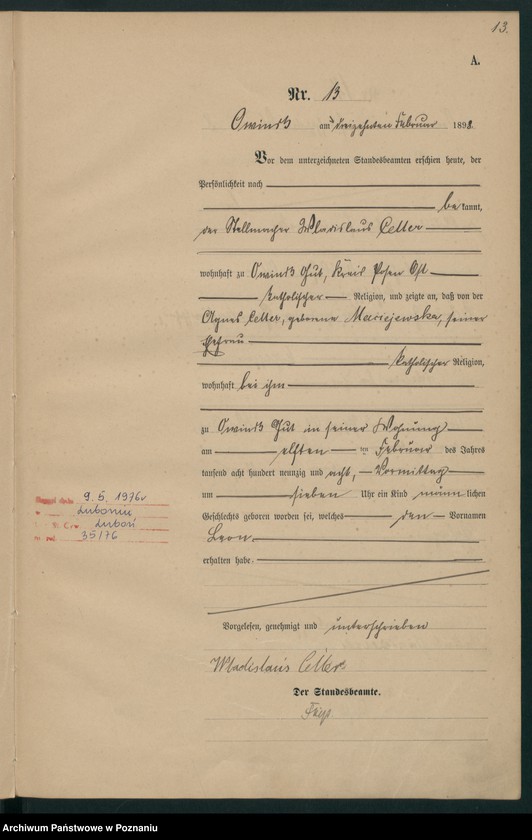 13.
A.
Nr. 13
Owinsk am dreizehnten Februar 1898.
Vor dem unterzeichneten Standesbeamten erschien heute, der
Persönlichkeit nach
bekannt,
der Stellmacher Wladislaus Celler
wohnhaft zu Owinsk Gut, Kreis Posen Ost
katholischer Religion, und zeigte an, daß von der
Agnes Celler, geborene Maciejewska, seiner
Ehefrau
katholischer Religion,
wohnhaft bei ihm
zu Owinsk Gut in seiner Wohnung
am elften Februar des Jahres
tausend acht hundert neunzig und acht, Vormittag
um sieben Uhr ein Kind männlichen
Geschlechts geboren worden sei, welches den Vornamen
Leon
erhalten habe.
9. 5. 1976r
Luboniu
Luboń
35/76
Vorgelesen, genehmigt und unterschrieben
Wladislaus Celler
Der Standesbeamte.
Archiwum Państwowe w Poznaniu